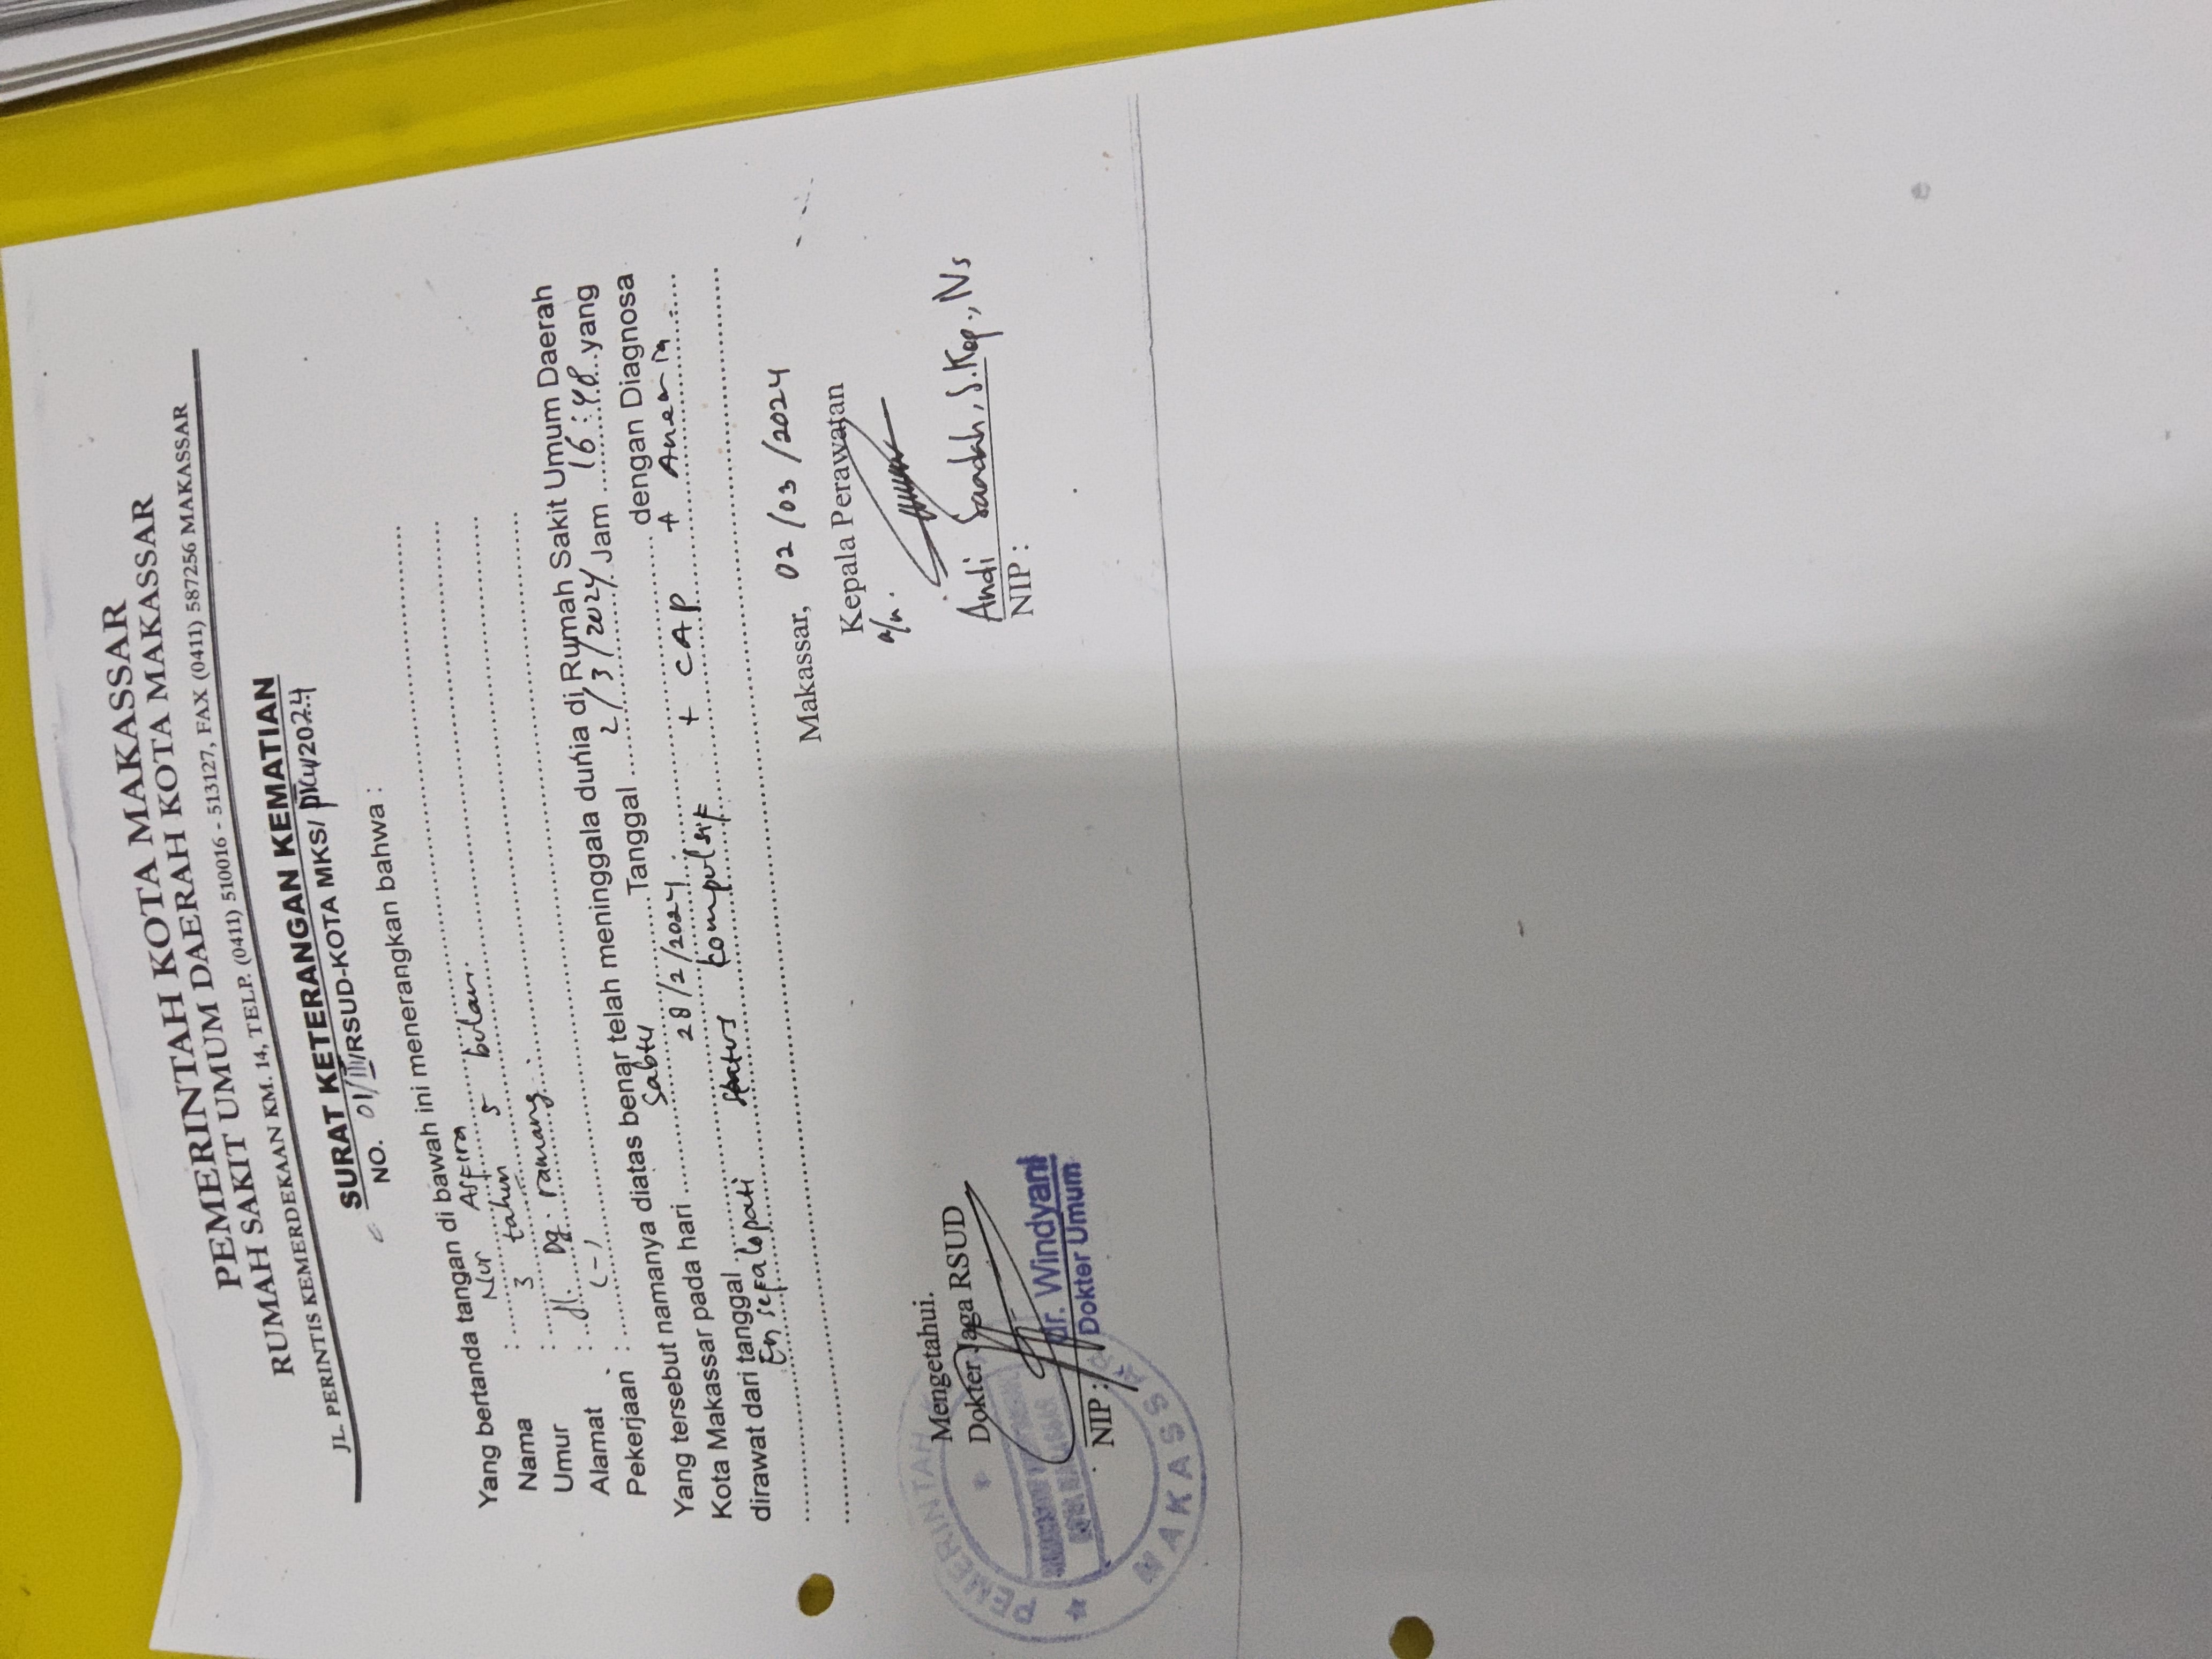 PEMERINTAH KOTA MAKASSAR
RUMAH SAKIT UMUM DAERAH KOTA MAKASSAR
JL. PERINTIS KEMERDEKAAN KM. 14, TELP. (0411) 510016 - 513127, FAX (0411) 587256 MAKASSAR
SURAT KETERANGAN KEMATIAN
NO. 01/III/RSUD-KOTA MKS/ /2024
Yang bertanda tangan di bawah ini menerangkan bahwa :
Nama : Nur Asfira
Umur : 3 tahun 5 bulan.
Alamat : Jl. Dg. ramang.
Pekerjaan : (-)
Yang tersebut namanya diatas benar telah meninggala dunia di Rumah Sakit Umum Daerah
Kota Makassar pada hari Sabtu Tanggal 2/3/2024 Jam 16:48 yang
dirawat dari tanggal 28/2/2024. dengan Diagnosa
Ensefalopati status kompulsif + CAP + Anemia.
Makassar, 02/03/2024
Kepala Perawatan
a/n.
Andi Saadah, S.Kep., Ns
NIP :
Mengetahui.
Dokter Jaga RSUD
dr. Windyani
Dokter Umum
NIP :
PEMERINTAH
KOTA MAKASSAR
MAKASSAR